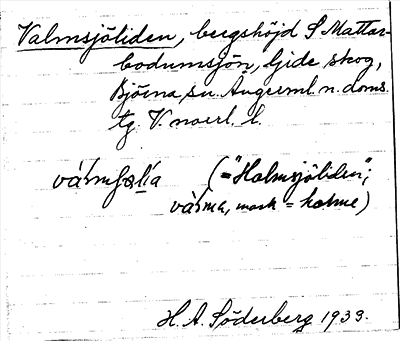 Valmsjöliden, bergshöjd S Mattar-
bodumsjön, Gide skog,
Björna sn. Ångerml. n. doms.
tg. V. norrl. l.
(="Holmsjöliden";
mask = holme)
H. A. Söderberg 1933.